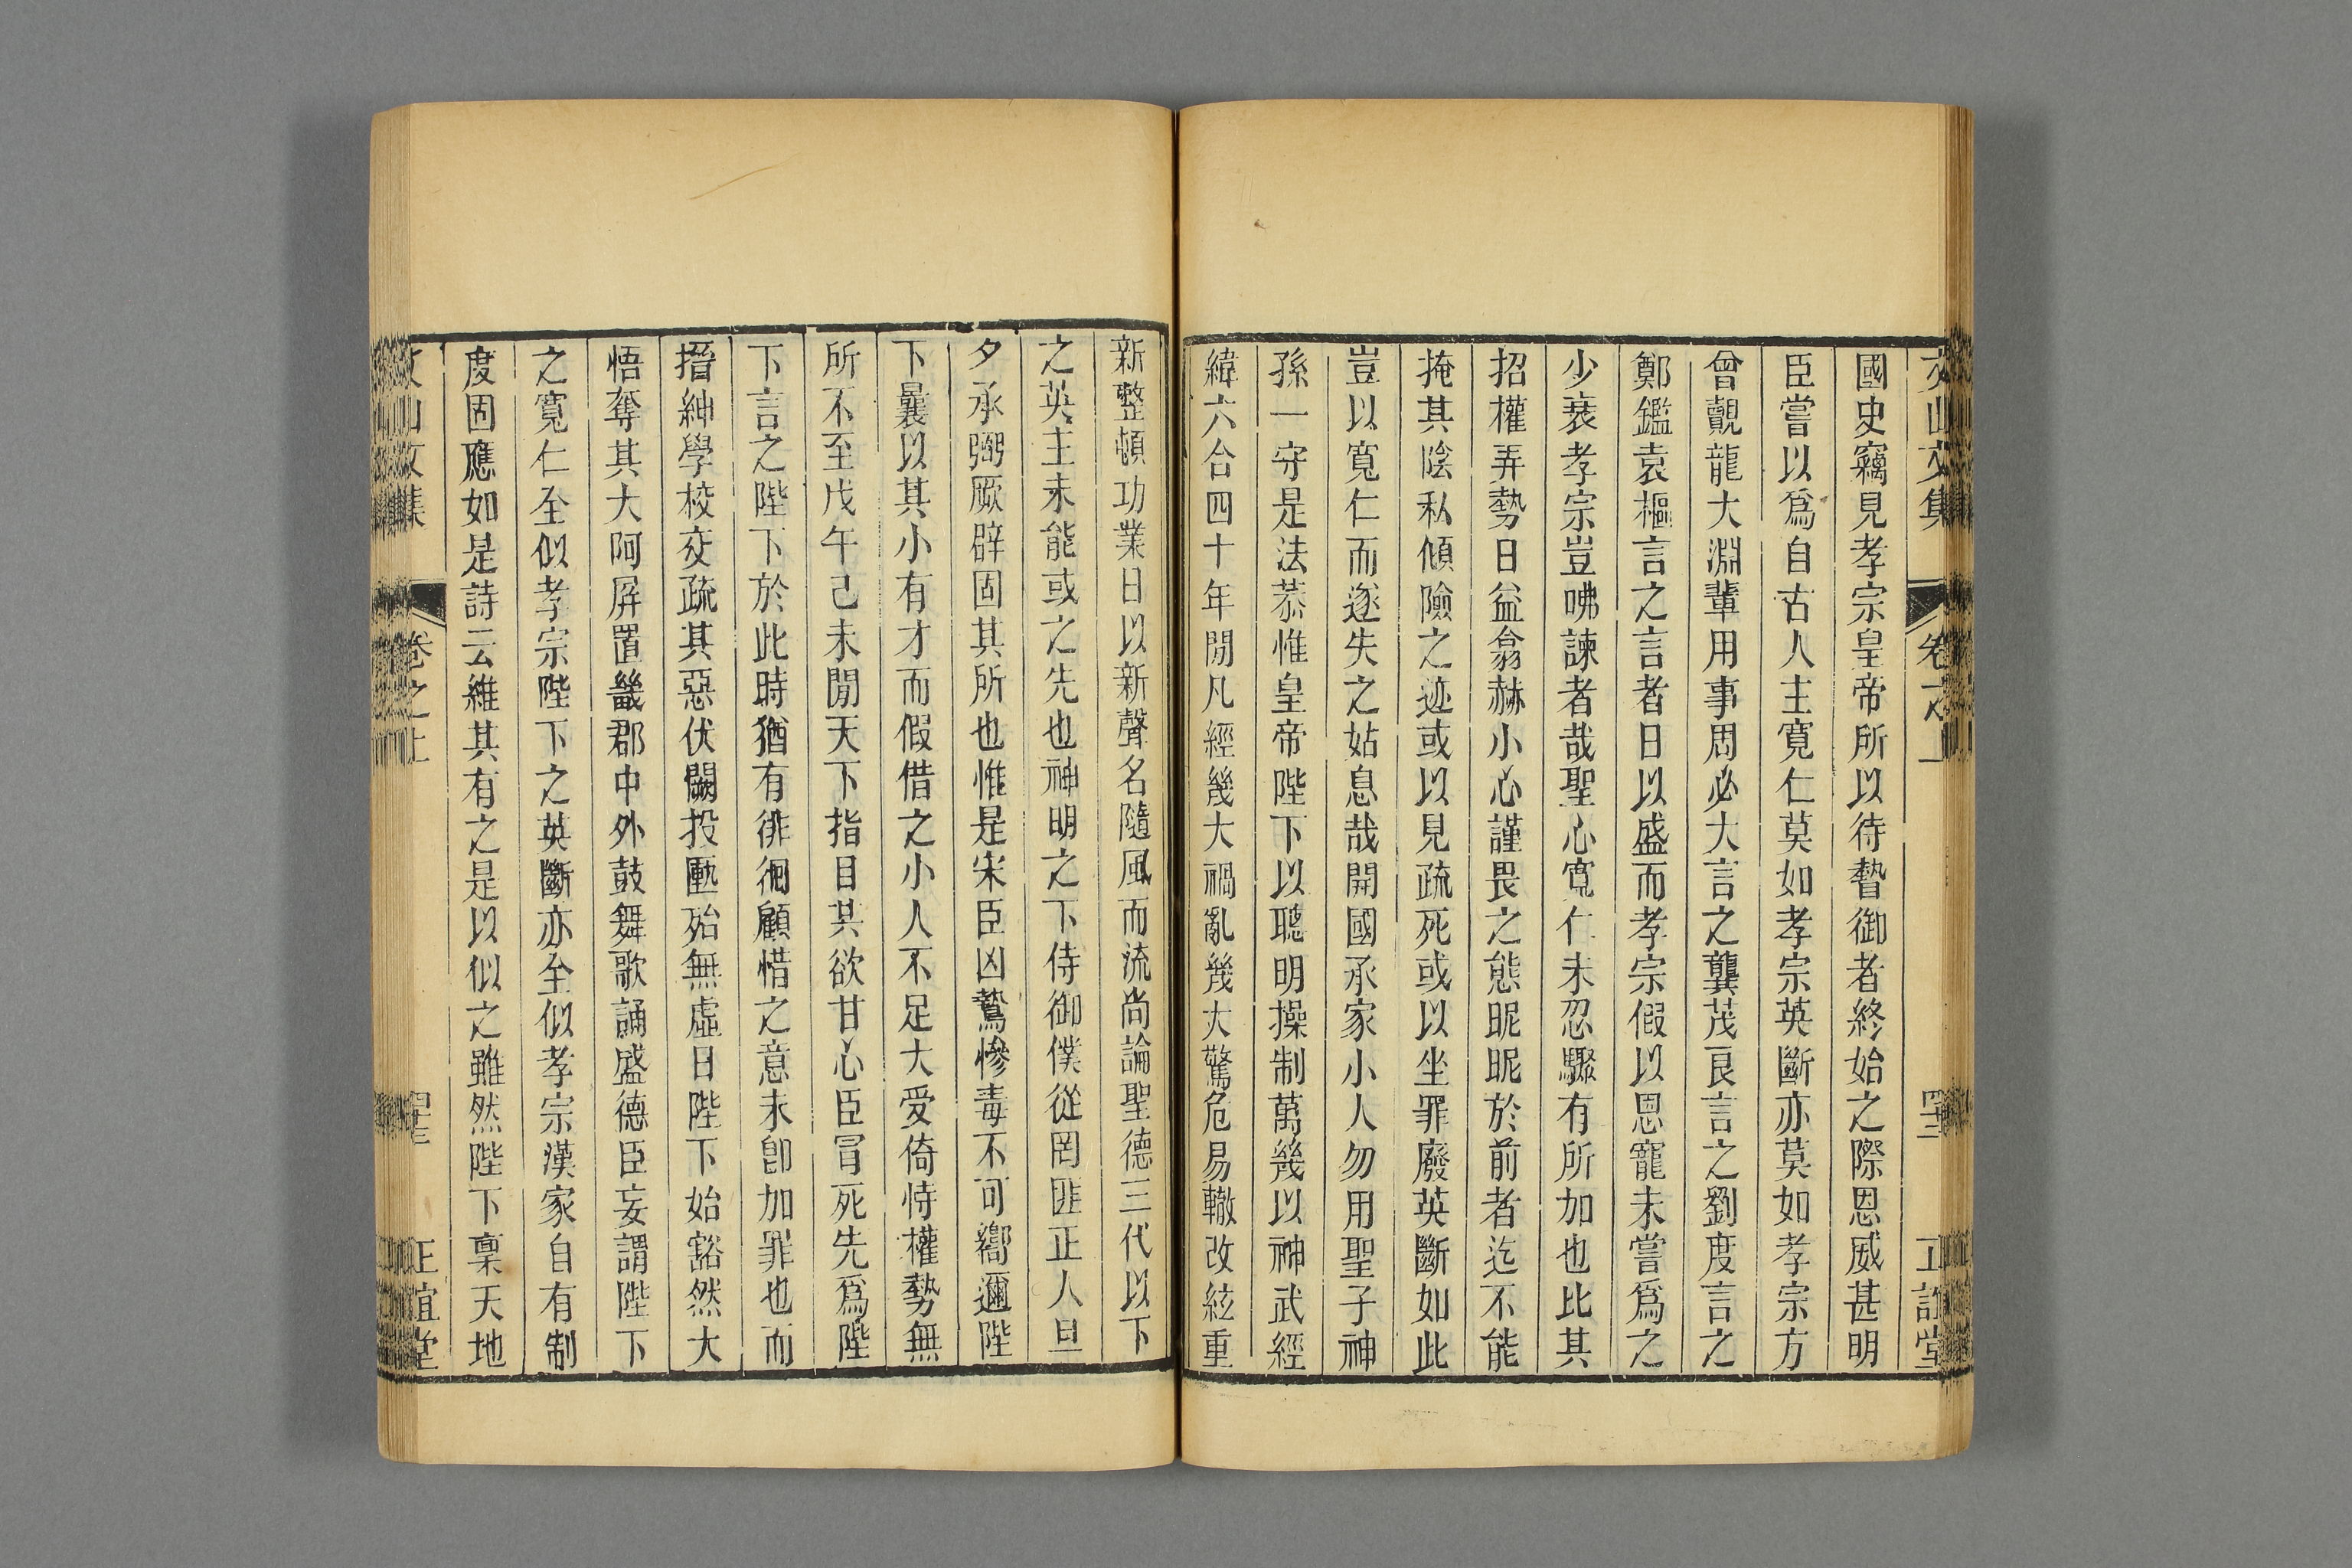 文山文集 卷之上 正誼堂
國史竊見孝宗皇帝所以待暬御者終始之際恩威甚明
臣嘗以爲自古人主寬仁莫如孝宗英斷亦莫如孝宗方
曾覿龍大淵輩用事周必大言之龔茂良言之劉度言之
鄭鑑袁樞言之言者日以盛而孝宗假以恩寵未嘗爲之
少衰孝宗豈咈諫者哉聖心寬仁未忍驟有所加也比其
招權弄勢日益翕赫小心謹畏之態昵昵於前者迄不能
掩其陰私傾險之迹或以見疏死或以坐罪廢英斷如此
豈以寬仁而遂失之姑息哉開國承家小人勿用聖子神
孫一守是法恭惟皇帝陛下以聰明操制萬幾以神武經
緯六合四十年閒凡經幾大禍亂幾大驚危易轍改絃重
新整頓功業日以新聲名隨風而流尚論聖德三代以下
之英主未能或之先也神明之下侍御僕從罔匪正人旦
夕承弼厥辟固其所也惟是宋臣凶鷙慘毒不可嚮邇陛
下曩以其小有才而假借之小人不足大受倚恃權勢無
所不至戊午己未閒天下指目其欲甘心臣冒死先爲陛
下言之陛下於此時猶有徘徊顧惜之意未卽加罪也而
搢紳學校交疏其惡伏闕投匭殆無虛日陛下始豁然大
悟奪其大阿屏置畿郡中外鼓舞歌誦盛德臣妄謂陛下
之寬仁至似孝宗陛下之英斷亦至似孝宗漢家自有制
度固應如是詩云維其有之是以似之雖然陛下稟天地
文山文集 卷之上 正誼堂